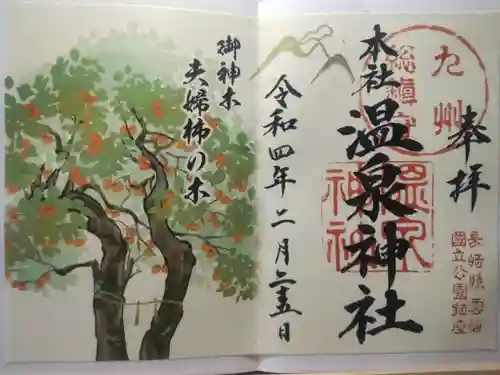 奉拝
九州
総鎮守
本社
温泉神社
温泉神社
長崎県雲仙
国立公園鎮座
令和四年二月二十五日
御神木
夫婦柿の木